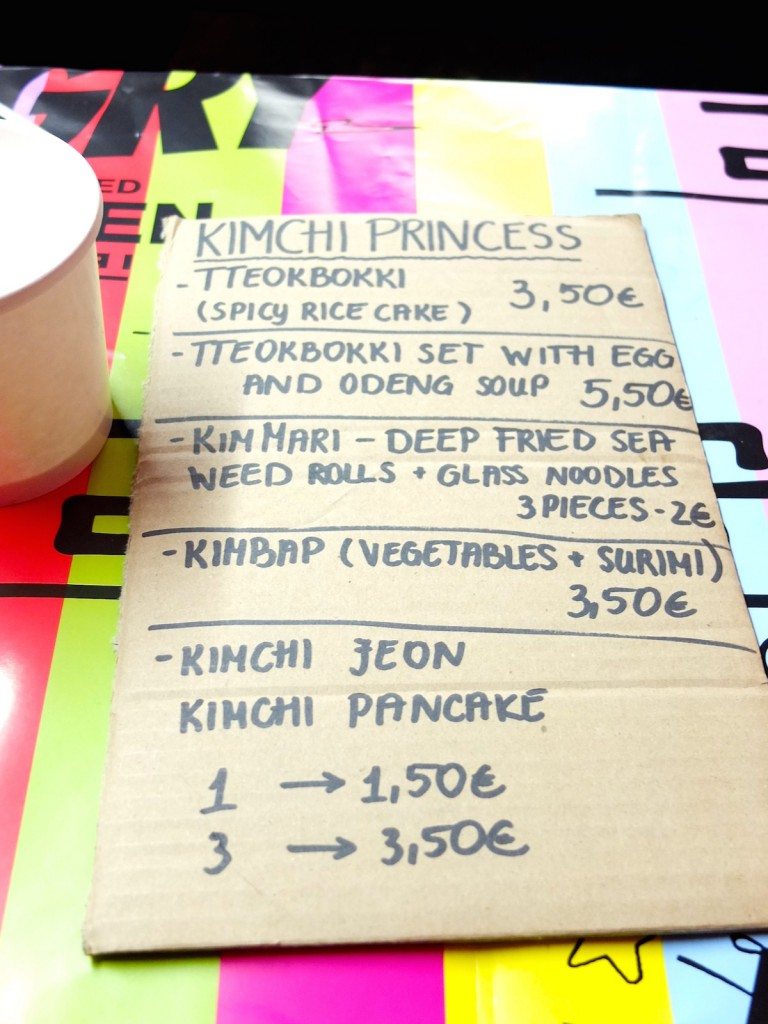 KIMCHI PRINCESS
- TTEOKBOKKI
(SPICY RICE CAKE) 3,50€
- TTEOKBOKKI SET WITH EGG
AND ODENG SOUP 5,50€
- KIMMARI - DEEP FRIED SEA
WEED ROLLS + GLASS NOODLES
3 PIECES - 2€
- KIMBAP (VEGETABLES + SURIMI)
3,50€
- KIMCHI JEON
KIMCHI PANCAKE
1 → 1,50€
3 → 3,50€